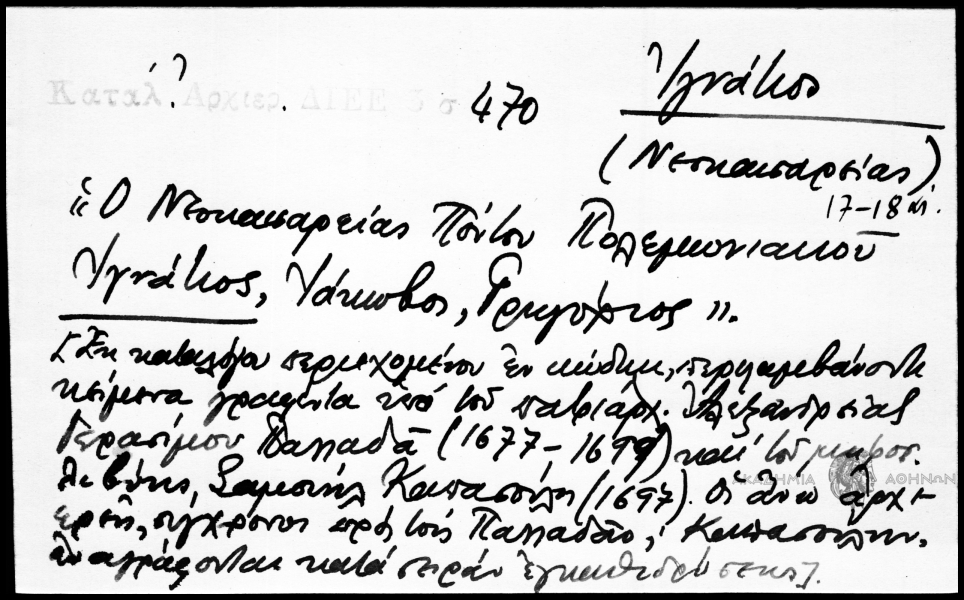 Καταλ. Αρχιερ. ΔΙΕΕ 3 σ
? 470 Ἰγνάτιος
(Νεοκαισαρείας)
17-18 αἰ.
«Ὁ Νεοκαισαρείας Πόντου Πολεμωνιακοῦ
Ἰγνάτιος, Ἰάκωβος, Γρηγόριος».
[Ἐκ καταλόγου περιεχομένου ἐν κώδικι, περιλαμβάνοντι
κείμενα γραφέντα ὑπὸ τοῦ πατριάρχ. Ἀλεξανδρείας
Γερασίμου Παλλαδᾶ (1677-1699) καὶ τοῦ μητροπ.
Λιβύης Σαμουὴλ Καπασούλη (1697). Οἱ ἄνω ἀρχι-
ερεῖς, σύγχρονοι πρὸς τοὺς Παλλαδᾶν, Καπασούλην,
ἀναγράφονται κατὰ σειρὰν ἐγκαθιδρύσεως].
ΑΚΑΔΗΜΙΑ ΑΘΗΝΩΝ